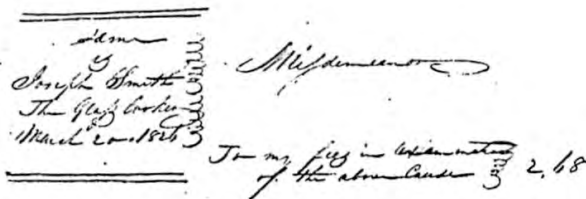 same
vs
Joseph Smith
The Glass looker
March 20 1826
Misdemeanor
To my fees in examination
of the above Cause 2.68